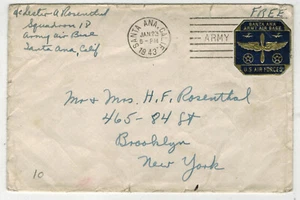 A/c Lester A Rosenthal
Squadron 18
Army Air Base
Santa Ana, Calif
SANTA ANA, CALIF.
JAN 23
6-PM
1943
ARMY
FREE
SANTA ANA
ARMY AIR BASE
U.S AIR FORCES
Mr & Mrs. H. F. Rosenthal
465-84 St
Brooklyn
New York
10